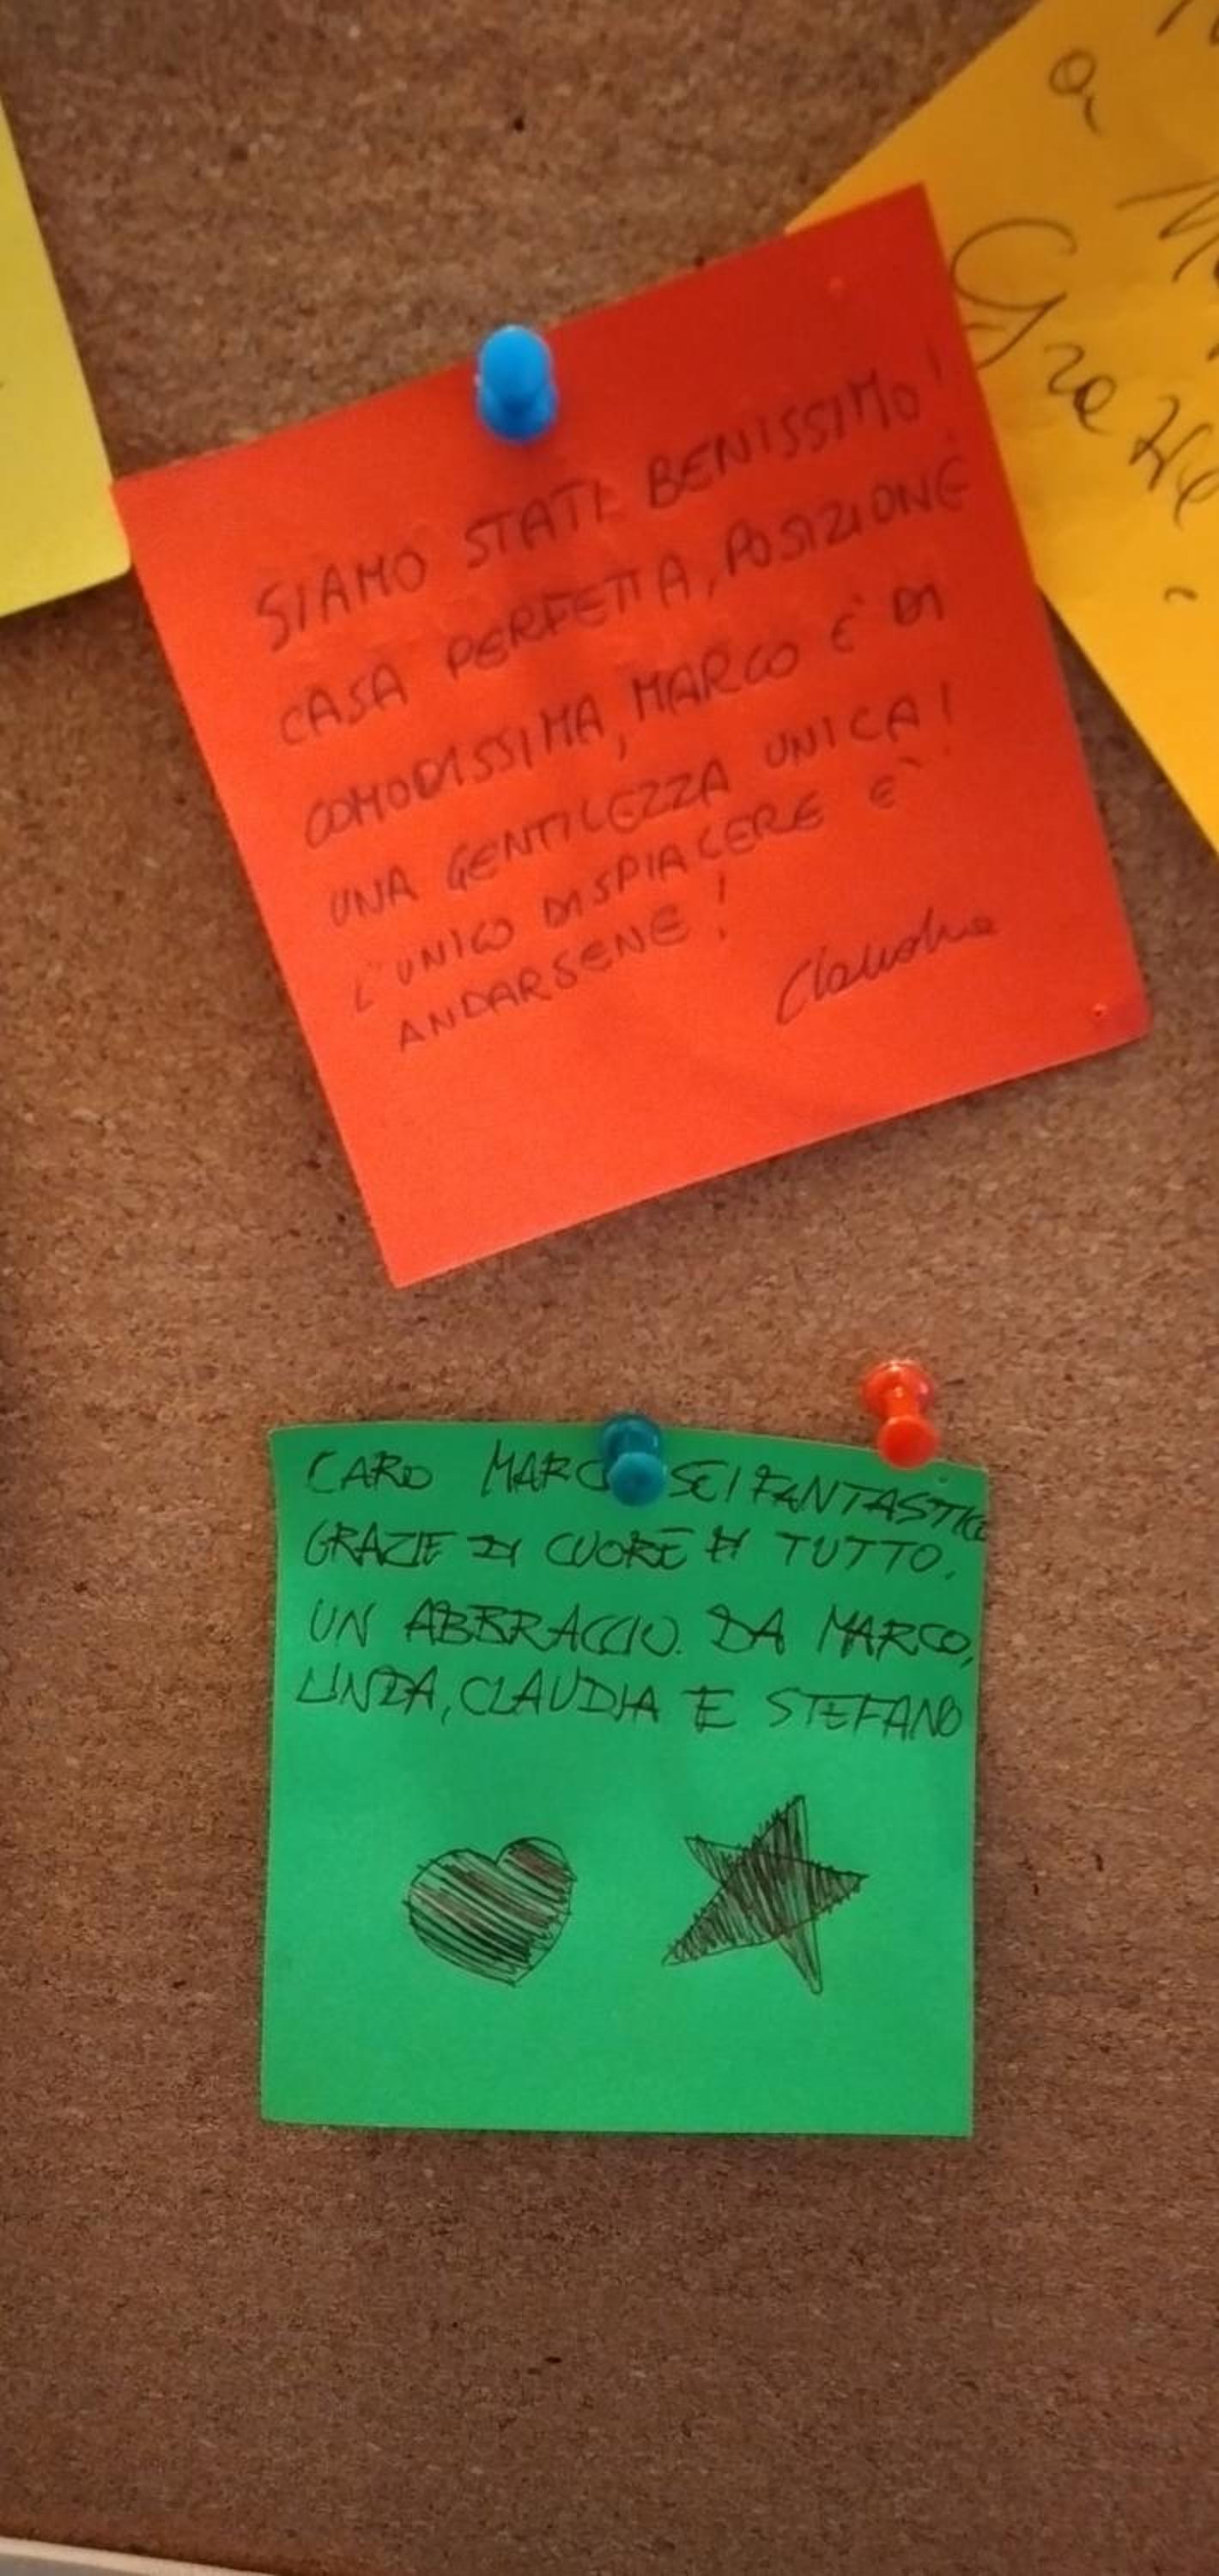 SIAMO STATI BENISSIMO!
CASA PERFETTA, POSIZIONE
COMODISSIMA, MARCO E' DI
UNA GENTILEZZA UNICA!
L'UNICO DISPIACERE E'
ANDARSENE!
Claudia
Grazie
CARO MARCO SEI FANTASTICO
GRAZIE DI CUORE DI TUTTO.
UN ABBRACCIO. DA MARCO,
LINDA, CLAUDIA E STEFANO